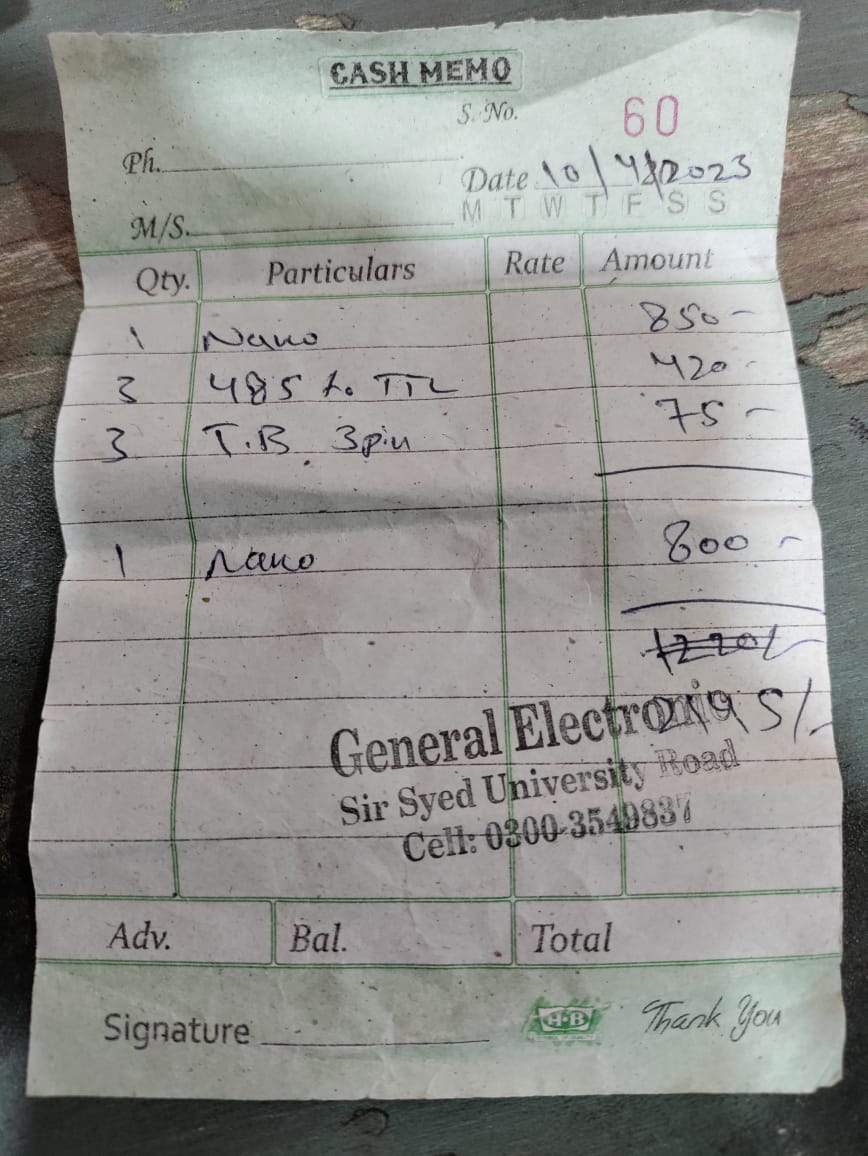 CASH MEMO
S. No. 60
Ph.
Date 10/4/2023
M T W T F S S
M/S.
Qty. Particulars Rate Amount
1 Nano 850-
3 485 to TTL 420-
3 T.B 3pin 75-
1 Nano 800-
1220/-
2145/-
General Electronic
Sir Syed University Road
Cell: 0300-3549837
Adv. Bal. Total
Signature
H·B
Thank You